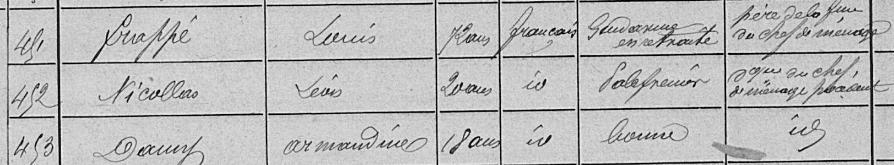 451 Frappé Louis 72 ans français Gendarme en retraite père de la fme du chef de ménage
452 Nicollas Léon 20 ans id Palefrenier dque du chef de ménage précédent
453 armandine 18 ans id bonne id